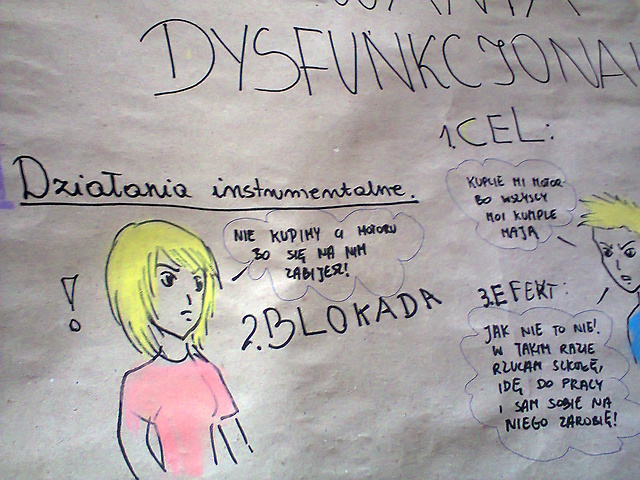 DYSFUNKCJONAL
1. CEL:
Działania instrumentalne.
KUPCIE MI MOTOR
BO WSZYSCY
MOI KUMPLE
MAJĄ
NIE KUPIMY CI MOTORU
BO SIĘ NA NIM
ZABIJESZ!
!
2. BLOKADA
3. EFEKT:
JAK NIE TO NIE!
W TAKIM RAZIE
RZUCAM SZKOŁĘ,
IDĘ DO PRACY
I SAM SOBIE NA
NIEGO ZAROBIĘ!